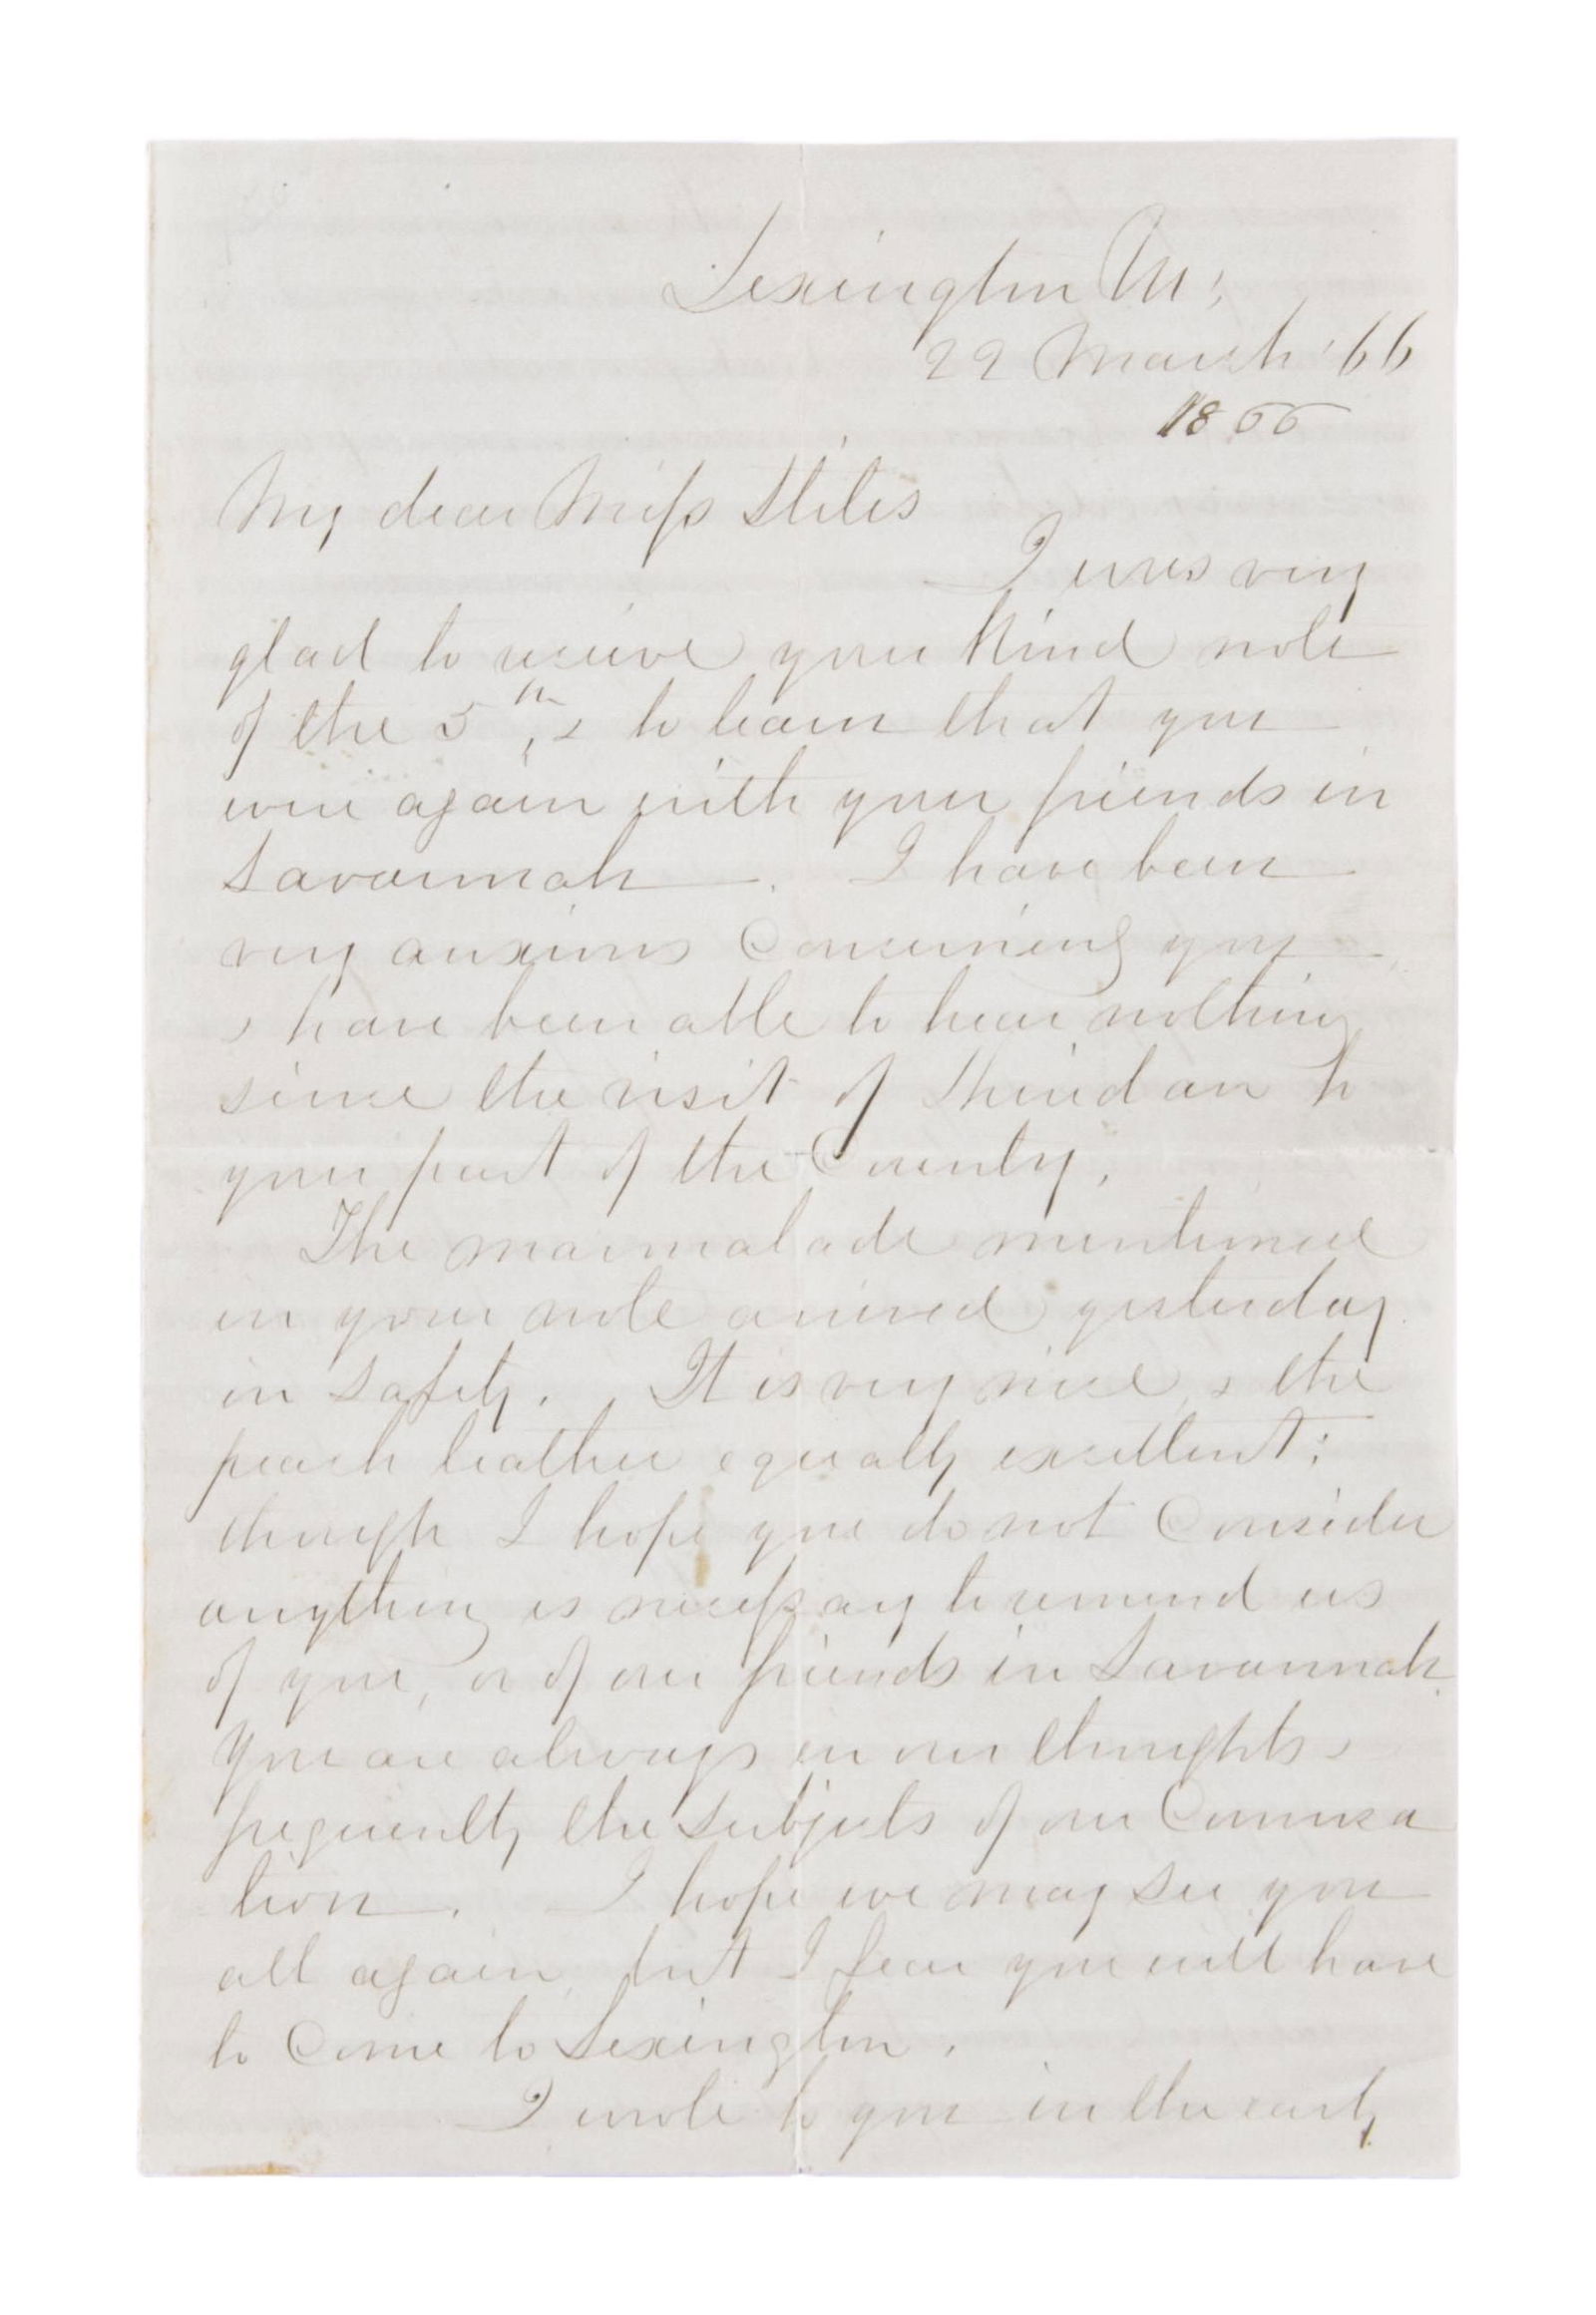 Lexington Va:
22 March '66
1866
My dear Miss Stiles
I was very
glad to receive your kind note
of the 5th, & to learn that you
were again with your friends in
Savannah. I have been
very anxious concerning you
& have been able to hear nothing
since the visit of Sheridan to
your part of the County.
The marmalade mentioned
in your note arrived yesterday
in safety. It is very nice, & the
peach leather equally excellent;
though I hope you do not consider
anything is necessary to remind us
of you, or of our friends in Savannah.
You are always in our thoughts &
frequently the subjects of our Conversa
tion. I hope we may see you
all again, but I fear you will have
to Come to Lexington.
I wrote to you in the early